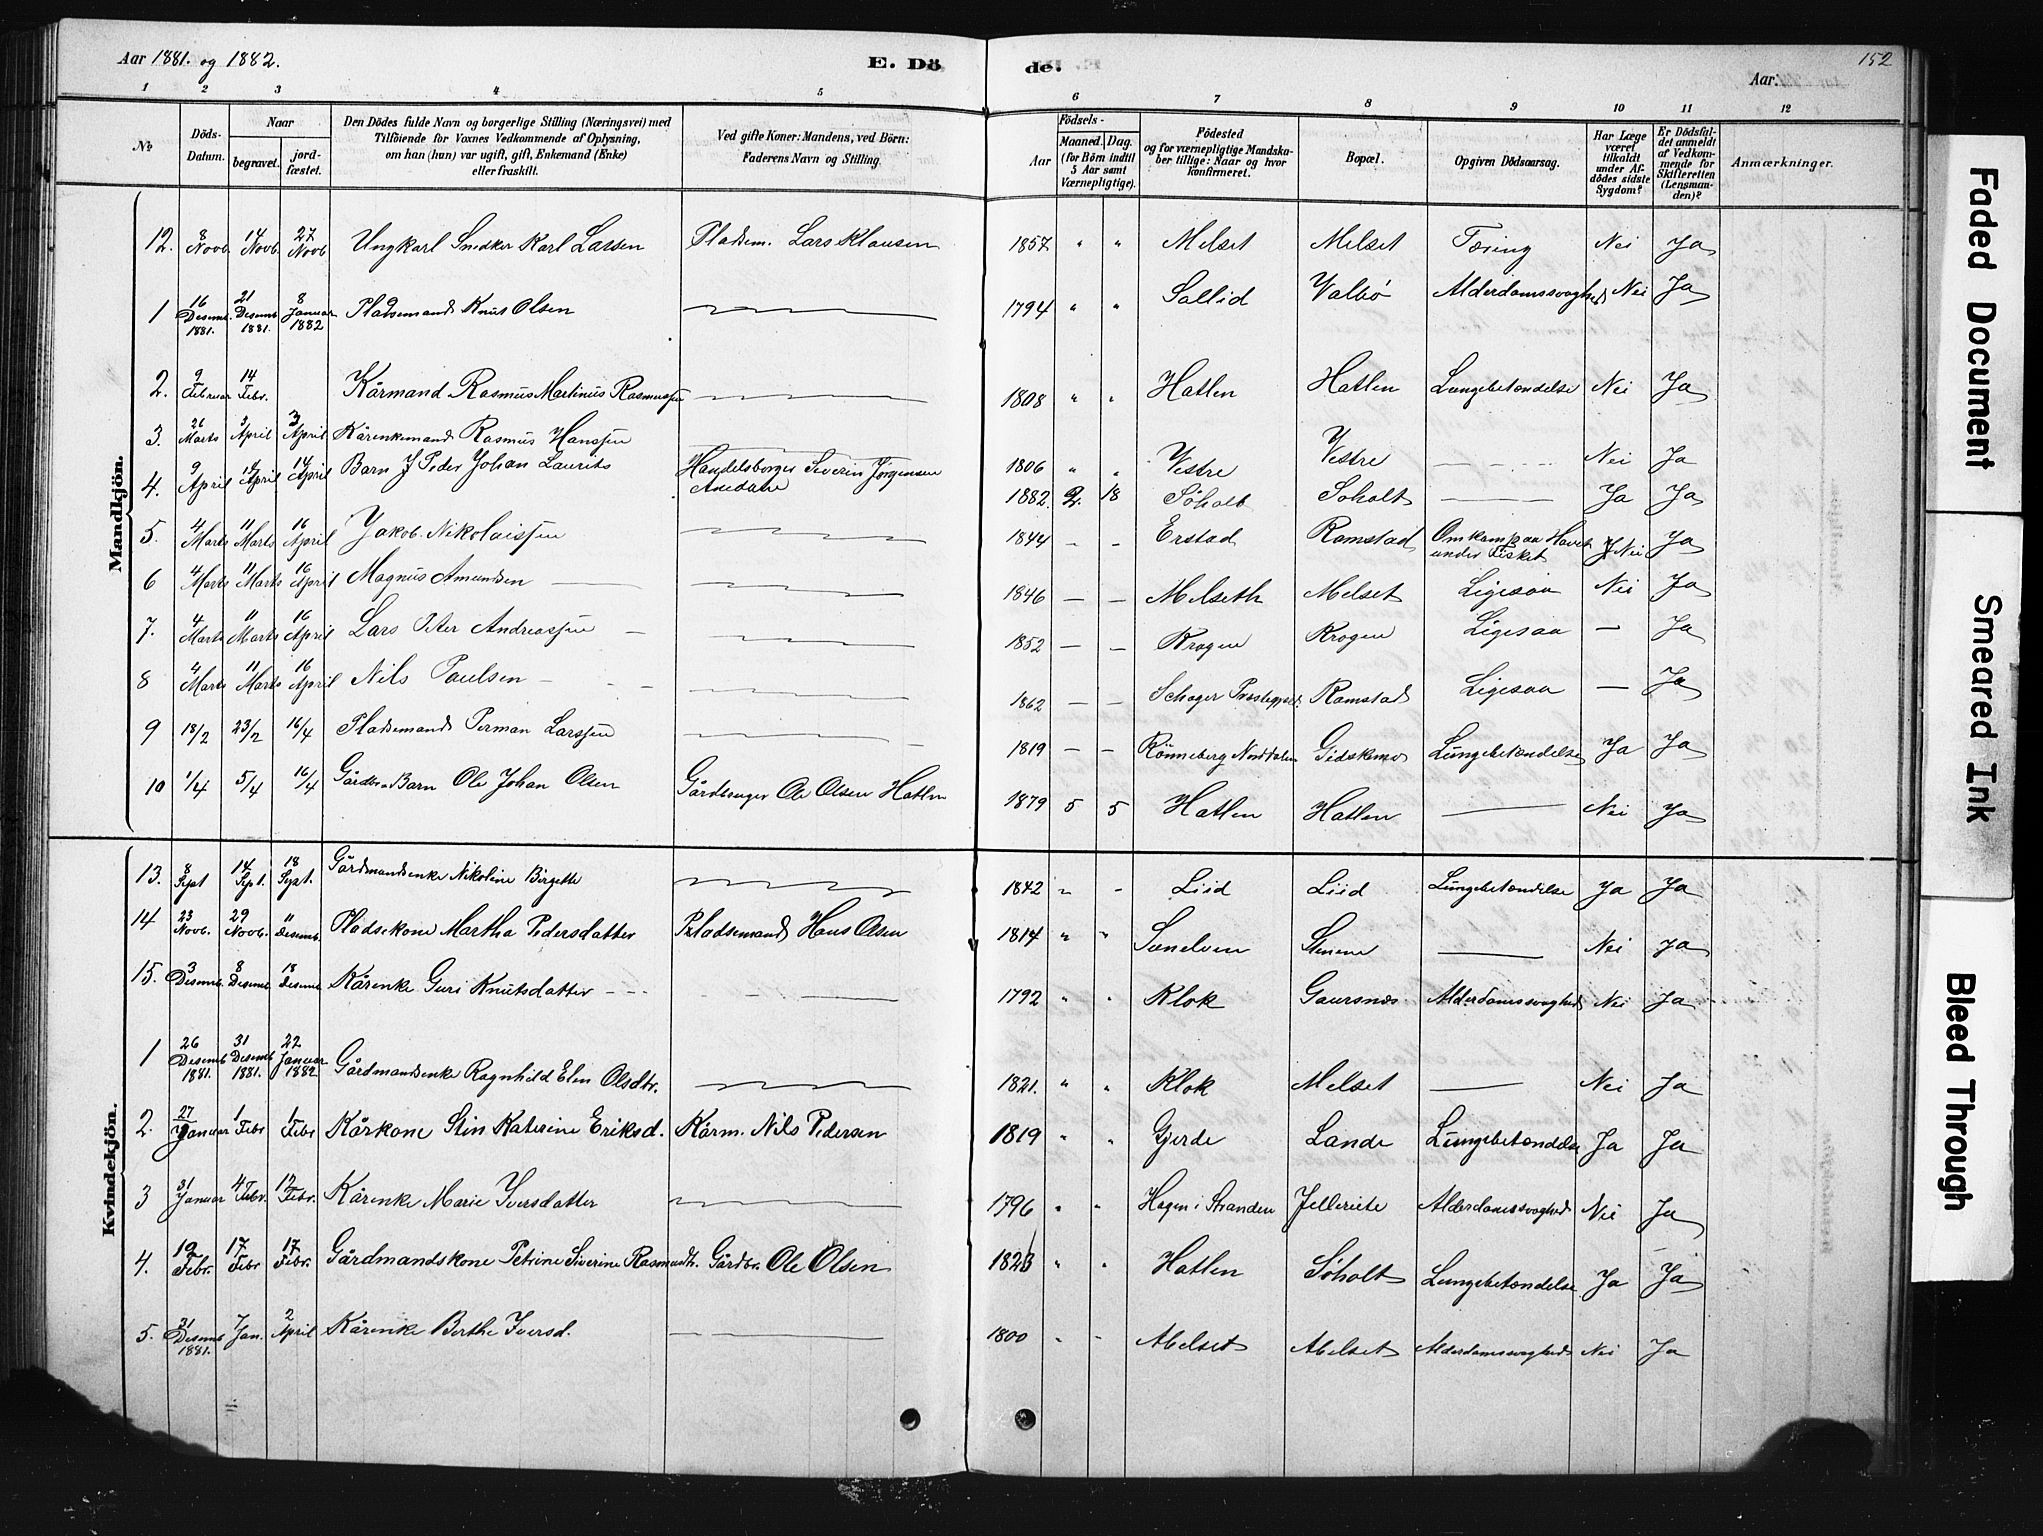 Aar 1881. og 1882.
E. Dö
de.
Aar.
152
1 2 3 4 5 6 7 8 9 10 11 12
№
Döds-Datum.
Naar
begravet.
jord-fæstet.
Den Dödes fulde Navn og borgerlige Stilling (Næringsvei) med
Tilföiende for Voxnes Vedkommende af Oplysning,
om han (hun) var ugift, gift, Enkemand (Enke)
eller fraskilt.
Ved gifte Koner: Mandens, ved Börn:
Faderens Navn og Stilling.
Födsels-
Aar
Maaned. Dag.
(for Börn indtil
5 Aar samt
Værnepligtige).
Födested
og for værnepligtige Mandska-
ber tillige: Naar og hvor
konfirmeret.
Bopæl.
Opgiven Dödsaarsag.
Har Læge
været
tilkaldt
under Af-
dödes sidste
Sygdom?
Er Dödsfal-
det anmeldt
af Vedkom-
mende for
Skifteretten
(Lensman-
den)?
Anmærkninger.
Mandkjön.
12. 8 Novb. 14 Novb. 27 Novb Ungkarl Snedker Karl Larsen Pladsm. Lars Klausen 1857 " " Melset Melset Tæring Nei Ja
1 16 Desemb. 1881. 21 Desemb 1881. 8 Januar 1882 Pladsemand Knut Olsen 1794 " " Sollid Valbø Alderdomssvaghed Nei Ja
2. 9 Februar 14 Febr. Kårmand Rasmus Martinus Rasmussen 1808 " " Hatlen Hatlen Lungebetændelse Nei Ja
3. 26 Marts 3 April 3 April Kårenkemand Rasmus Hanssen 1806 " " Vestre Vestre Nei Ja
4. 9 April 14 April 14 April Barn Peder Johan Laurits Handelsborger Siverin Jørgensen 1882. 2. 18 Søholt Søholt Ja Ja
5. 4 Marts 11 Marts 16 April Jakob Nikolaissen 1844 - - Erstad Ramstad Omkom paa Havet under Fisket Nei Ja
6 4 Marts 11 Marts 16 April Magnus Amundsen 1846 - - Melseth Melset Ligesaa Nei Ja
7. 4 Marts 11 Marts 16 April Lars Peter Andreassen 1852 - - Krogen Krogen Ligesaa - Ja
8 4 Marts 11 Marts 16 April Nils Paulsen 1862 - - Ramstad Ligesaa - Ja
9 18/2 23/2 16/4 Pladsemand Perman Larssen 1819 - - Rönneberg Norddalen Gidskemo Lungebetændelse Ja Ja
10 1/4 5/4 16/4 Gårdbr. Barn Ole Johan Olsen Gårdbruger Ole Olsen Hatlen 1879 5 5 Hatlen Hatlen Nei Ja
Kvindekjön.
13. 8 Sept 14 Sept. 18 Sept. Gårdmandsenke Nikoline Birgette 1842 " " Liid Liid Lungebetændelse Ja Ja
14 23 Novb. 29 Novb. " Desemb. Pladsekone Martha Pedersdatter Pladsemand Hans Olsen 1814 " " Sunelven Stenene Nei Ja
15. 3 Desemb. 8 Desemb 18 Desemb Kårenke Guri Knutsdatter 1792 " " Klok Gaursnæs Alderdomssvaghed Nei Ja
1 26 Desemb 1881. 31 Desemb 1881. 22 Januar 1882 Gårdmandsenke Ragnhild Elen Olsdtr. 1821. " " Klok Melset Nei Ja
2. 27 Januar 1 Febr 1 Febr Kårkone Stin Katerine Eriksd. Kårm. Nils Pedersen 1819 " " Gjerde Lande Lungebetændelse Ja Ja
3 31 Januar 4 Febr. 12 Febr. Kårenke Marie Iversdatter 1796 " " Hagen i Stranden Jelleriete Alderdomssvaghed Nei Ja
4. 10 Febr. 17 Febr 17 Febr. Gårdmandskone Petrine Siverine Rasmusdtr. Gårdbr. Ole Olsen 1823 " " Hatlen Søholt Lungebetændelse Ja Ja
5. 31 Desemb 1881. 7 Jan. 2 April Kårenke Berthe Iversd. 1800 " " Melset Melset Alderdomssvaghed Nei Ja
Faded Document
Smeared Ink
Bleed Through